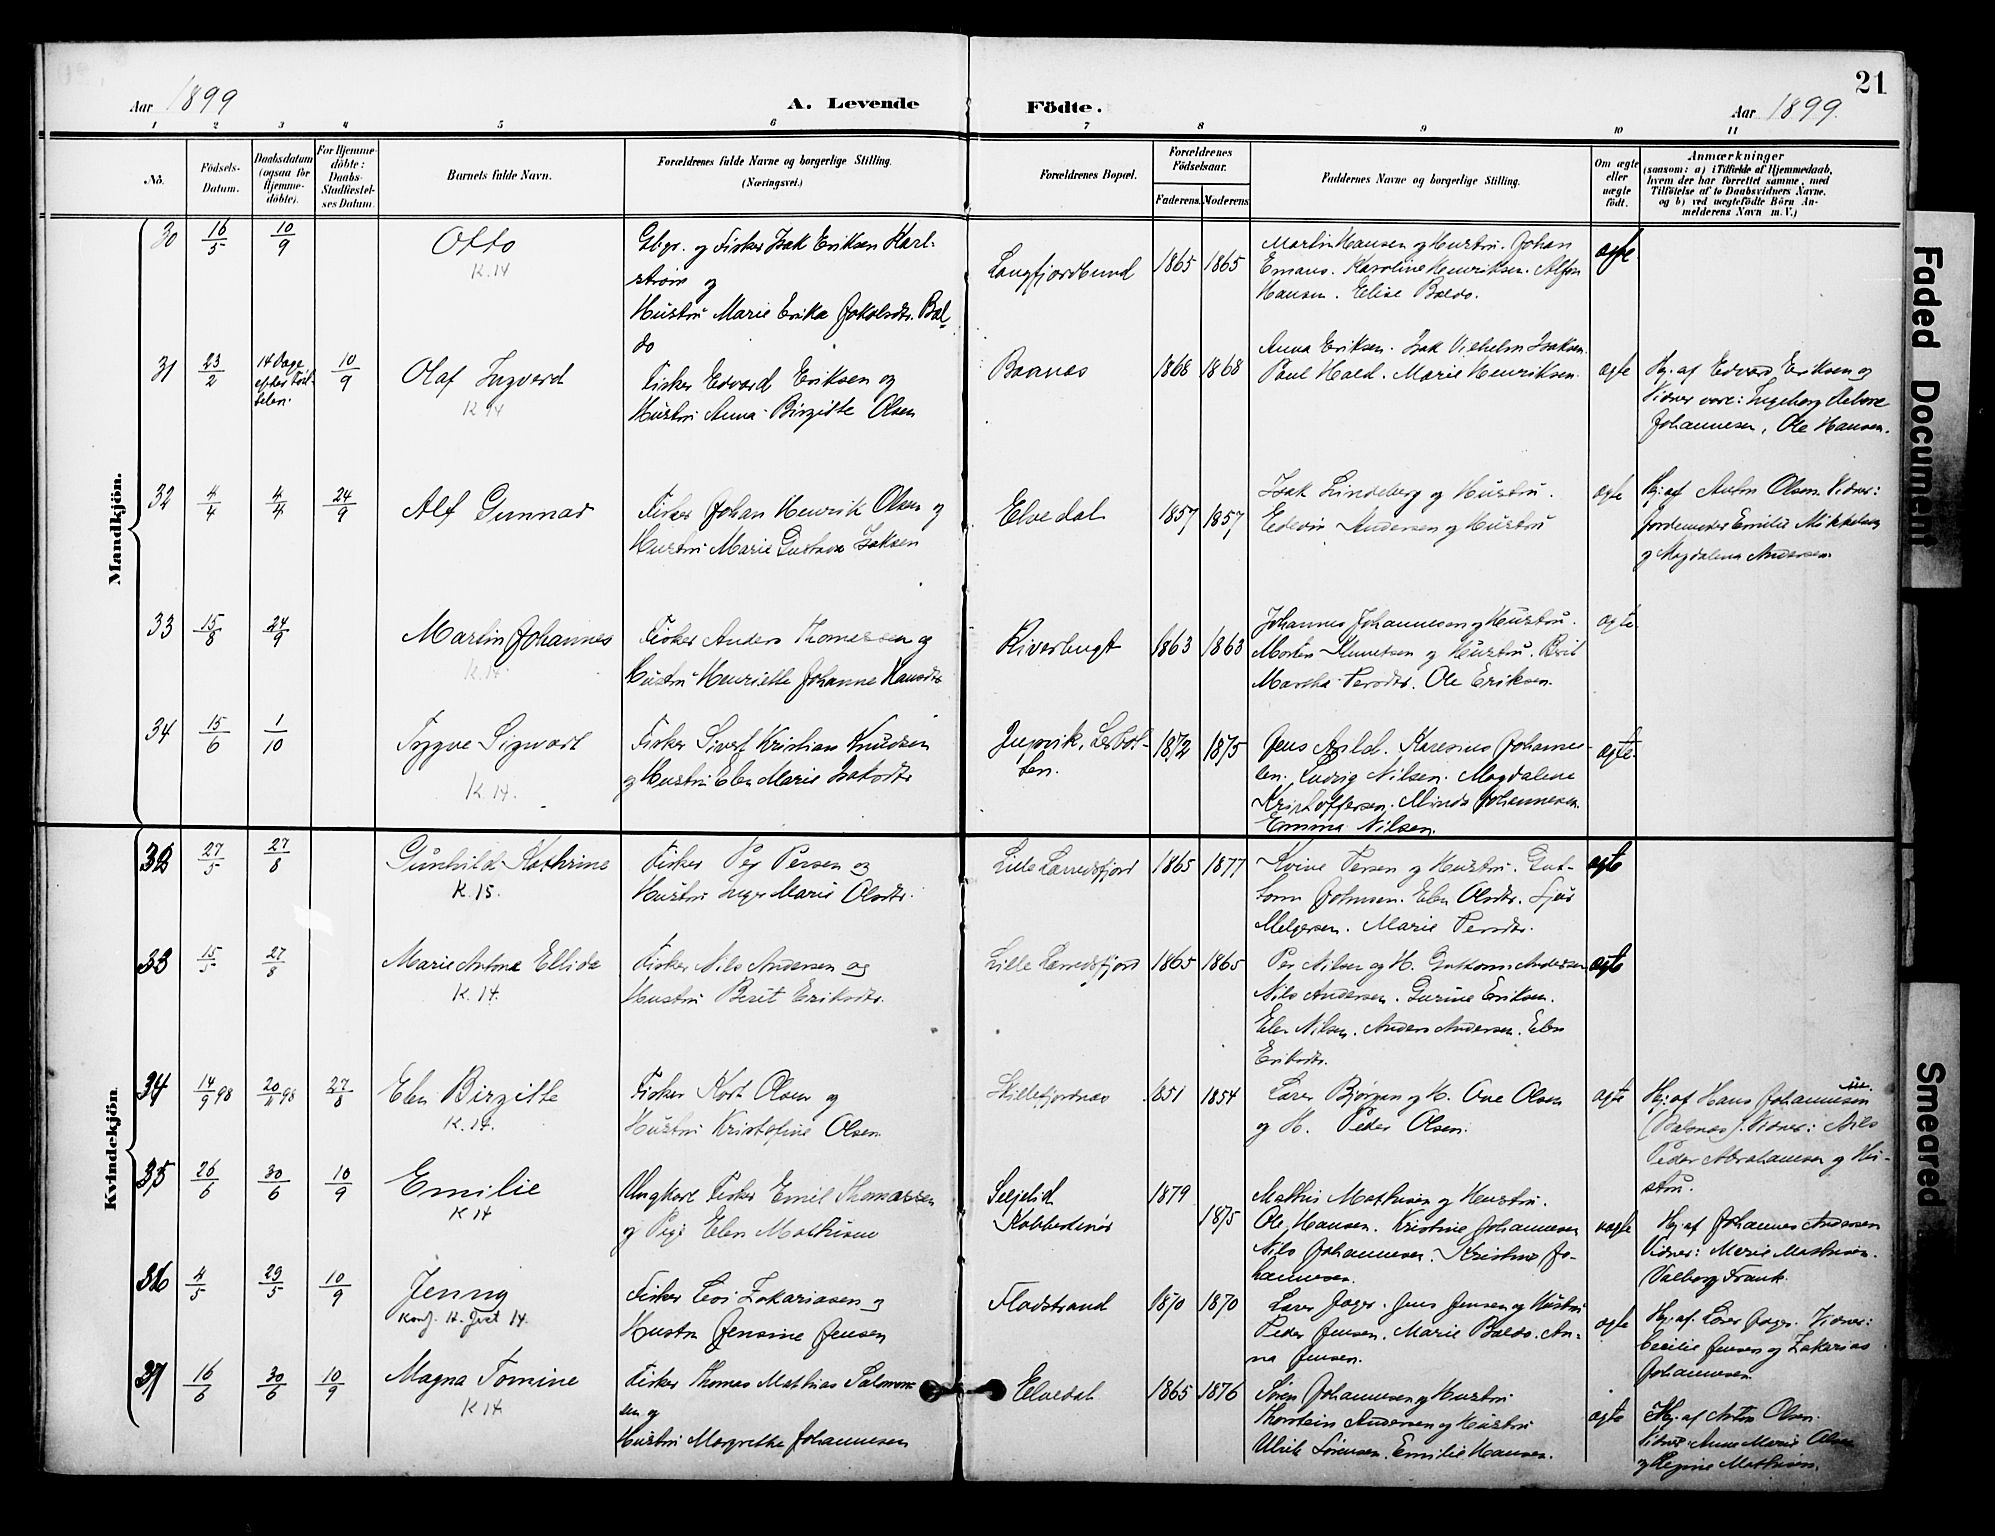 21
Aar 1899
A. Levende
Födte.
Aar 1899.
1 2 3 4 5 6 7 8 9 10 11
No.
Födsels-
Datum.
Daabsdatum
(ogsaa for
Hjemme-
döbte).
For Hjemme-
döbte:
Daabs-
Stadfæstel-
ses Datum.
Barnets fulde Navn.
Forældrenes fulde Navne og borgerlige Stilling.
(Næringsvei.)
Forældrenes Bopæl.
Forældrenes
Födselsaar.
Faderens. Moderens.
Faddernes Navne og borgerlige Stilling.
Om ægte
eller
uægte
födt.
Anmærkninger
(saasom: a) i Tilfælde af Hjemmedaab,
hvem der har forrettet samme, med
Tilföielse af to Daabsvidners Navne,
og b) ved uægtefödte Börn An-
melderens Navn m. V.)
Mandkjön.
30 16/5 10/9
Otto
K. 14
Gbgr. og Fisker Isak Eriksen Karl-
strøm og
Hustru Marie Erika Jakobsdtr. Bal-
do
Langfjordbund 1865 1865
Martin Hansen og Hustru. Johan
Emans. Karoline Henriksen. Alfon
Hansen. Elise Baldo.
ægte
31 23/2 14 Dage
efter Fød-
selen. 10/9
Olaf Ingvard
K. 14
Fisker Edvard Eriksen og
Hustru Anna Birgitte Olsen
1868 1868
Anna Eriksen. Isak Vilhelm Isaksen.
Paul Hald. Marie Henriksen.
ægte
Hj. af Edvard Eriksen og
Vidner vare: Ingeborg
Johannesen, Ole Hansen.
32 4/4 4/4 24/9
Alf Gunnar
Fisker Johan Henrik Olsen og
Hustru Marie Gustava Isaksen
Elvedal 1857 1857
Isak Lindeberg og Hustru.
Edevin Andersen og Hustru
ægte
Hj. af Anton Olsen. Vidner:
Jordemoder Emilie Mikkelsen
og Magdalena Andersen.
33 15/8 24/9
Martin Johannes
K. 14.
Fisker Anders Thomassen og
Hustru Henriette Johanne Hansdtr
Kiverbugt 1863 1863
Johannes Johannesen og Hustru.
Morten Knutsen og Hustru. Berit
Maretha Persdtr. Ole Eriksen.
ægte.
34 15/6 1/10
Trygve Sigvart
K. 14.
Fisker Sivert Kristian Knudsen
og Hustru Elen Marie Isaksdtr
1872 1875
Jens Arild. Karesius Johanne-
sen. Ludvig Nilsen. Magdalene
Kristoffersen. Minda Johannesen
Emma Nilsen.
ægte.
Kvindekjön
32 27/5 27/8
Gunhild Kathrine
K. 15.
Fisker Per Persen og
Hustru Inger Marie Olsdtr.
Lille Lerredsfjord 1865 1877
Kvive Persen og Hustru. Gut-
torm Johnsen. Elen Olsdtr. Sjur
Melgersen. Marie Persdtr.
ægte
33 15/5 27/8
Marie Antone Ellida
K. 14.
Fisker Nils Andersen og
Hustru Berit Eriksdtr.
Lille Lerredsfjord 1865 1865
Per Nilsen og H. Guttorm Andersen
Nils Andersen. Gurine Eriksen.
Elen Nilsen. Anders Andersen. Elen
Eriksdtr.
ægte
34 14/9 98 20/11 98 27/8
Elen Birgitte
K. 14.
Fisker Kort Olsen og
Hustru Kristofine Olsen
Skillefjordnæs 1851 1854
Lærer Bjørgan og H. Ove Olsen
og H. Peder Olsen.
ægte
Hj. af Hans Johannesen
Vidner: Nils
Peder Abrahamsen og Hu-
stru.
35 26/6 30/6 10/9
Emilie
K 14
Ungkarl Fisker Emil Thomassen
og Pige Elen Mathisen
Seljelid
1879
1875
Mathis Mathisen og Hustru.
Ole Hansen. Kristine Johannesen
Nils Johannesen. Kristine Jo-
hannesen.
uægte
Hj. af Johannes Andersen
Vidner: Marie Mathisen.
Valborg Frank.
36 4/5 29/5 10/9
Jenny
Konf. 14.
Fisker Levi Zakariasen og
Hustru Jensine Jensen
Fladstrand 1870 1870
Lærer Jager. Jens Jensen og Hustru
Peder Jensen. Marie Baldo. An-
na Jensen.
ægte
Hj. af. Lærer Jager. Vidner:
Cecilie Jensen og Zakarias
Johannesen.
37 16/6 30/6 10/9
Magna Tomine
K 14.
Fisker Thomas Mathias Salomon-
sen og
Hustru Margrethe Johannesen
Elvedal 1865 1876
Søren Johannesen og Hustru
Thorstein Andersen og Hustru
Ulrik Sørensen. Emilie Hansen.
ægte
Hj. af Anton Olsen.
Vidner: Anne Marie Olsen
og Regine Mathisen.
Faded Document
Smeared